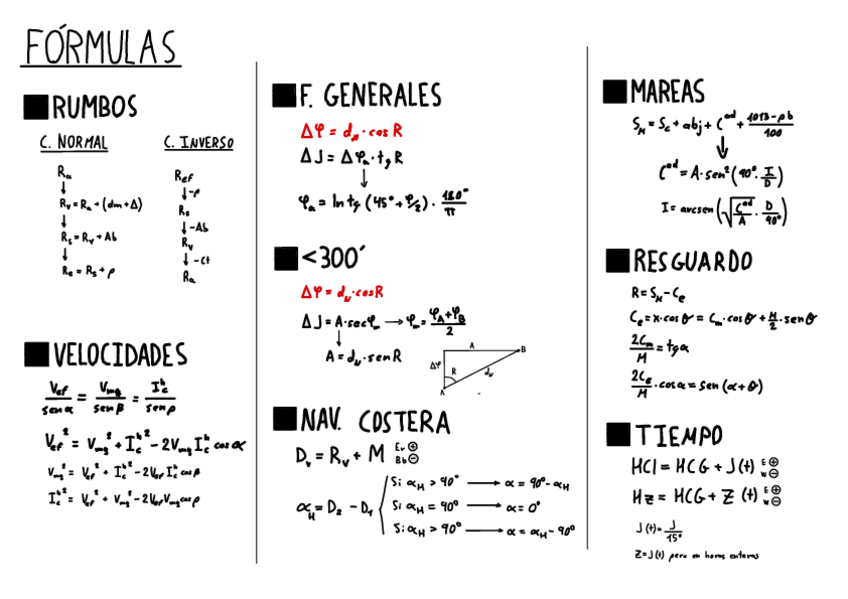 FÓRMULAS
RUMBOS
C. NORMAL
Ra
↓
Rv = Ra + (dm + Δ)
↓
Rs = Rv + Ab
↓
Re = Rs + ρ
C. INVERSO
Ref
↓ -ρ
Rs
↓ -Ab
Rv
↓ -Ct
Ra
VELOCIDADES
Vef / sen α = Vmq / sen β = Ihc / sen ρ
Vef² = Vmq² + Ihc² - 2Vmq Ihc cos α
Vmq² = Vef² + Ihc² - 2Vef Ihc cos β
Ihc² = Vef² + Vmq² - 2Vef Vmq cos ρ
F. GENERALES
Δφ = dN · cos R
ΔJ = Δφa · tg R
↓
φa = ln tg (45° + φ/2) · 180° / π
<300'
Δφ = dN · cos R
ΔJ = A · sec φm → φm = (φA + φB) / 2
↓
A = dN · sen R
A
B
Δφ
R
dN
A
NAV. COSTERA
Dv = Rv + M Er ⊕
Bb ⊖
αH = D2 - D1
Si αH > 90° → α = 90° - αH
Si αH = 90° → α = 0°
Si αH > 90° → α = αH - 90°
MAREAS
SM = Sc + abj + Cad + (1013 - pb) / 100
↓
Cad = A · sen² (90° · I / D)
I = arcsen (√(Cad / A) · D / 90°)
RESGUARDO
R = SM - Ce
Ce = x · cos θ = Cm · cos θ + M/2 · sen θ
2Cm / M = tg α
2Ce / M · cos α = sen (α + θ)
TIEMPO
HCl = HCG + J(t) E ⊕
W ⊖
Hz = HCG + Z (t) E ⊕
W ⊖
J(t) = J / 15°
Z = J(t) pero en horas enteras